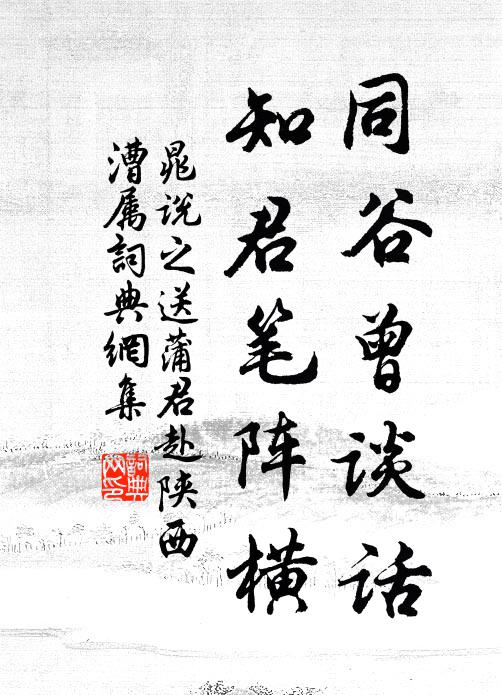 同谷曾谈话
知君笔阵横
晁说之送蒲君赴陕西
漕属詞典網集
詞典
网印